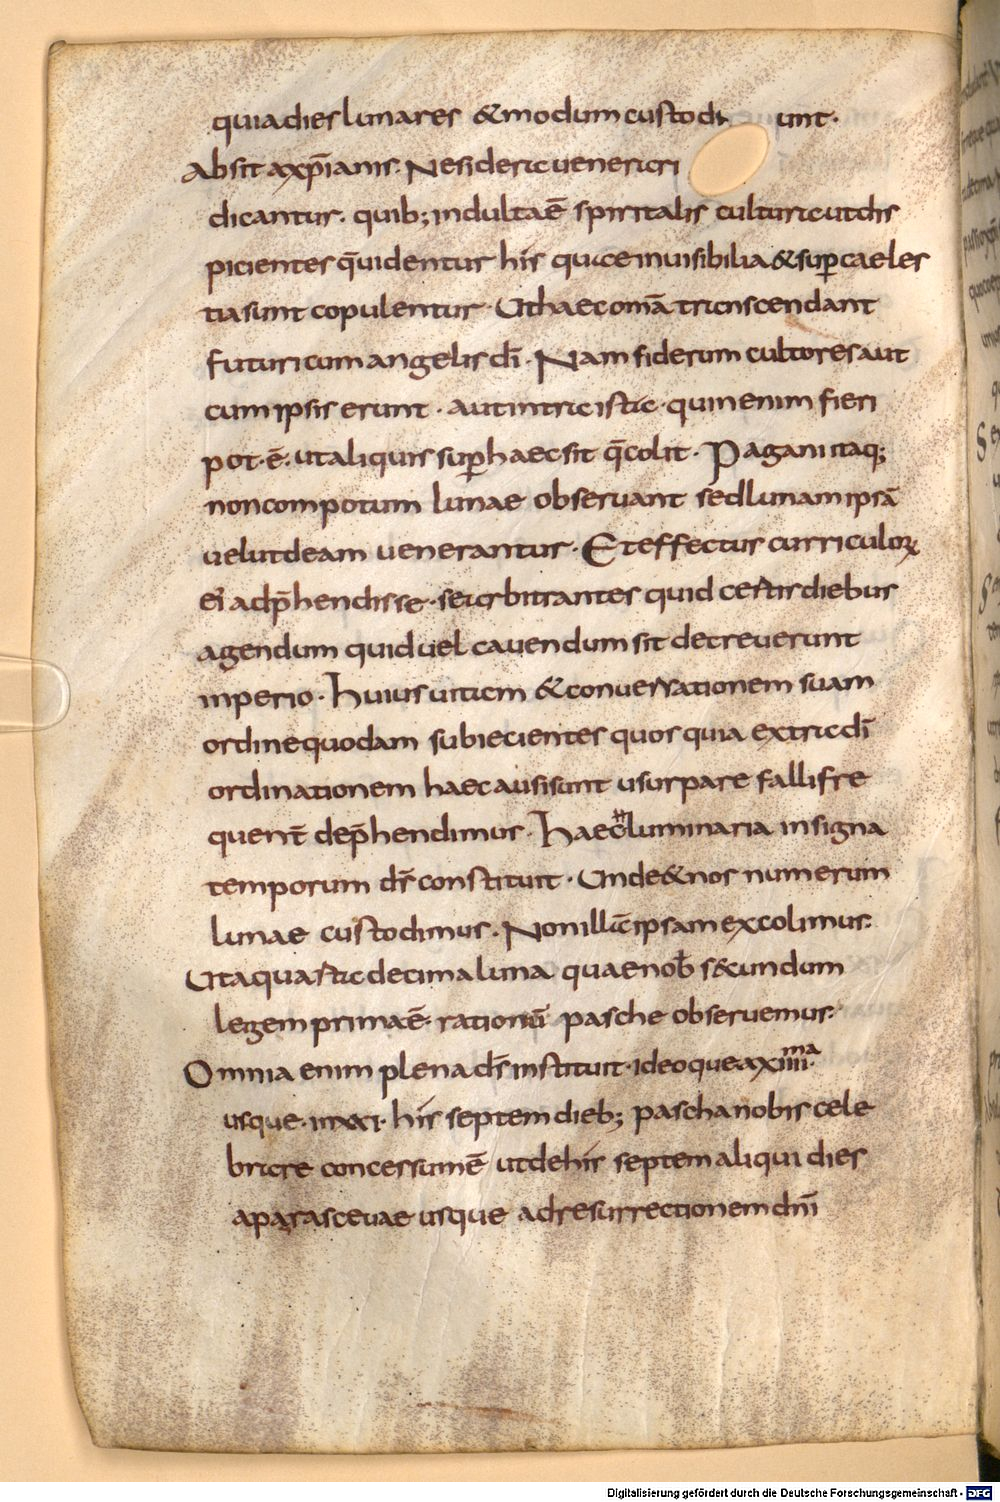 quia dies lunares & modum custodi unt.
Absit a xp̄ianis. Ne sidera venerari
dicantur. quib; indulta ē spiritalis cultura ut dis
picientes q̄ videntur his quae invisibilia & sup caeles
tia sunt copulentur. Ut haec om̄a transcendant
futuri cum angelis dī. Nam siderum cultores aut
cum ipsis erunt. aut intra ista. quin enim fieri
pot. ē. ut aliquis sup haec sit q̄ colit. Pagani itaq;
non compotum lunae observant sed lunam ipsā
velut deam venerantur. Et effectus curriculoꝝ
ei adp̄hendisse. se arbitrantes quid certis diebus
agendum quid vel cavendum sit decreverunt
inperio. Huius vitam & conversationem suam
ordine quodam subiecientes quos quia extra dī
ordinationem haec ausi sunt usurpare falli fre
quent̄ dep̄hendimus. Haec luminaria in signa
temporum dr̄ constituit. Unde & nos numerum
lunae custodimus. Non illā ipsam excolimus.
Ut a quarta decima luna quae nob̄ s&cundum
legem prima ē. rationū pasche observemus.
Omnia enim plena dr̄ instituit. ideoque a xiiii.ma
usque. in xxi. his septem dieb; pascha nobis cele
brare concessum ē ut de his septem aliqui dies
a parascevae usque ad resurrectionem dn̄i
Digitalisierung gefördert durch die Deutsche Forschungsgemeinschaft - DFG